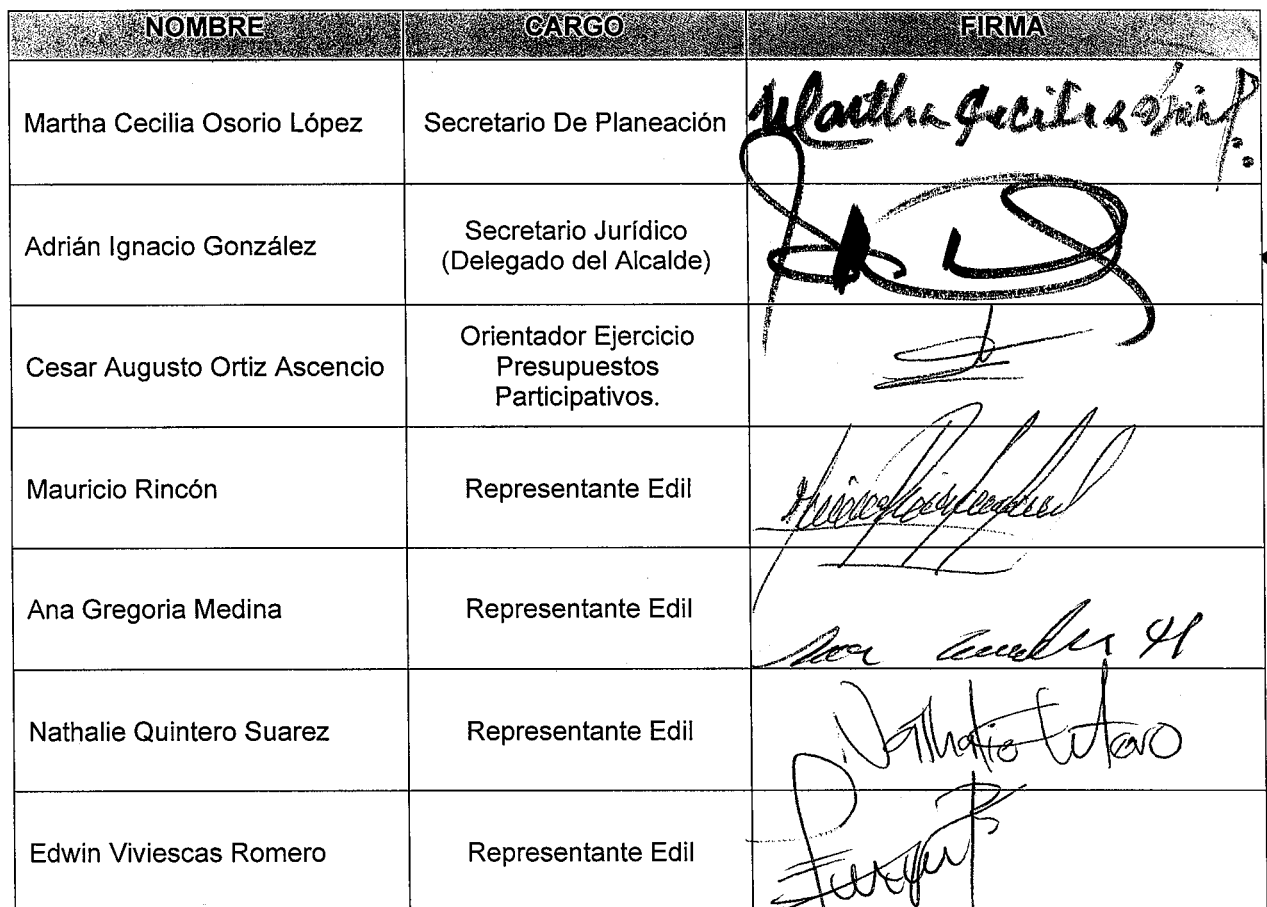 NOMBRE CARGO FIRMA
Martha Cecilia Osorio López Secretario De Planeación Martha Cecilia
Adrián Ignacio González Secretario Jurídico
(Delegado del Alcalde)
Cesar Augusto Ortiz Ascencio Orientador Ejercicio
Presupuestos
Participativos.
Mauricio Rincón Representante Edil
Ana Gregoria Medina Representante Edil
Nathalie Quintero Suarez Representante Edil Nathalie
Edwin Viviescas Romero Representante Edil